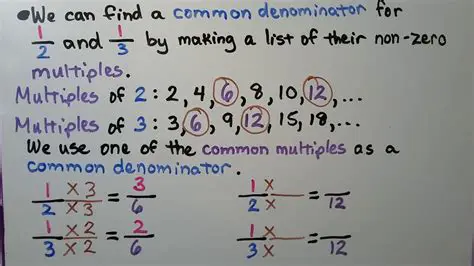 •We can find a common denominator for
1/2 and 1/3 by making a list of their non-zero
multiples.
Multiples of 2: 2, 4, 6, 8, 10, 12, ...
Multiples of 3: 3, 6, 9, 12, 15, 18, ...
We use one of the common multiples as a
common denominator.
1/2 x 3/x 3 = 3/6    1/2 x/x = /12
1/3 x 2/x 2 = 2/6    1/3 x/x = /12